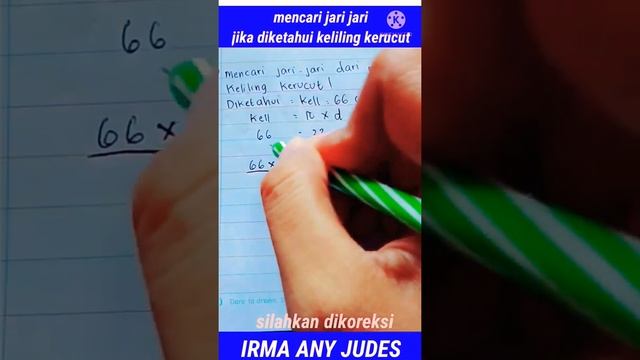 mencari jari jari
jika diketahui keliling kerucut
Mencari jari-jari dari
Keliling kerucut!
Diketahui = Kell = 66
Kell = π x d
66 = 22
66 x
66
66 x
Dare to dream.
silahkan dikoreksi
IRMA ANY JUDES